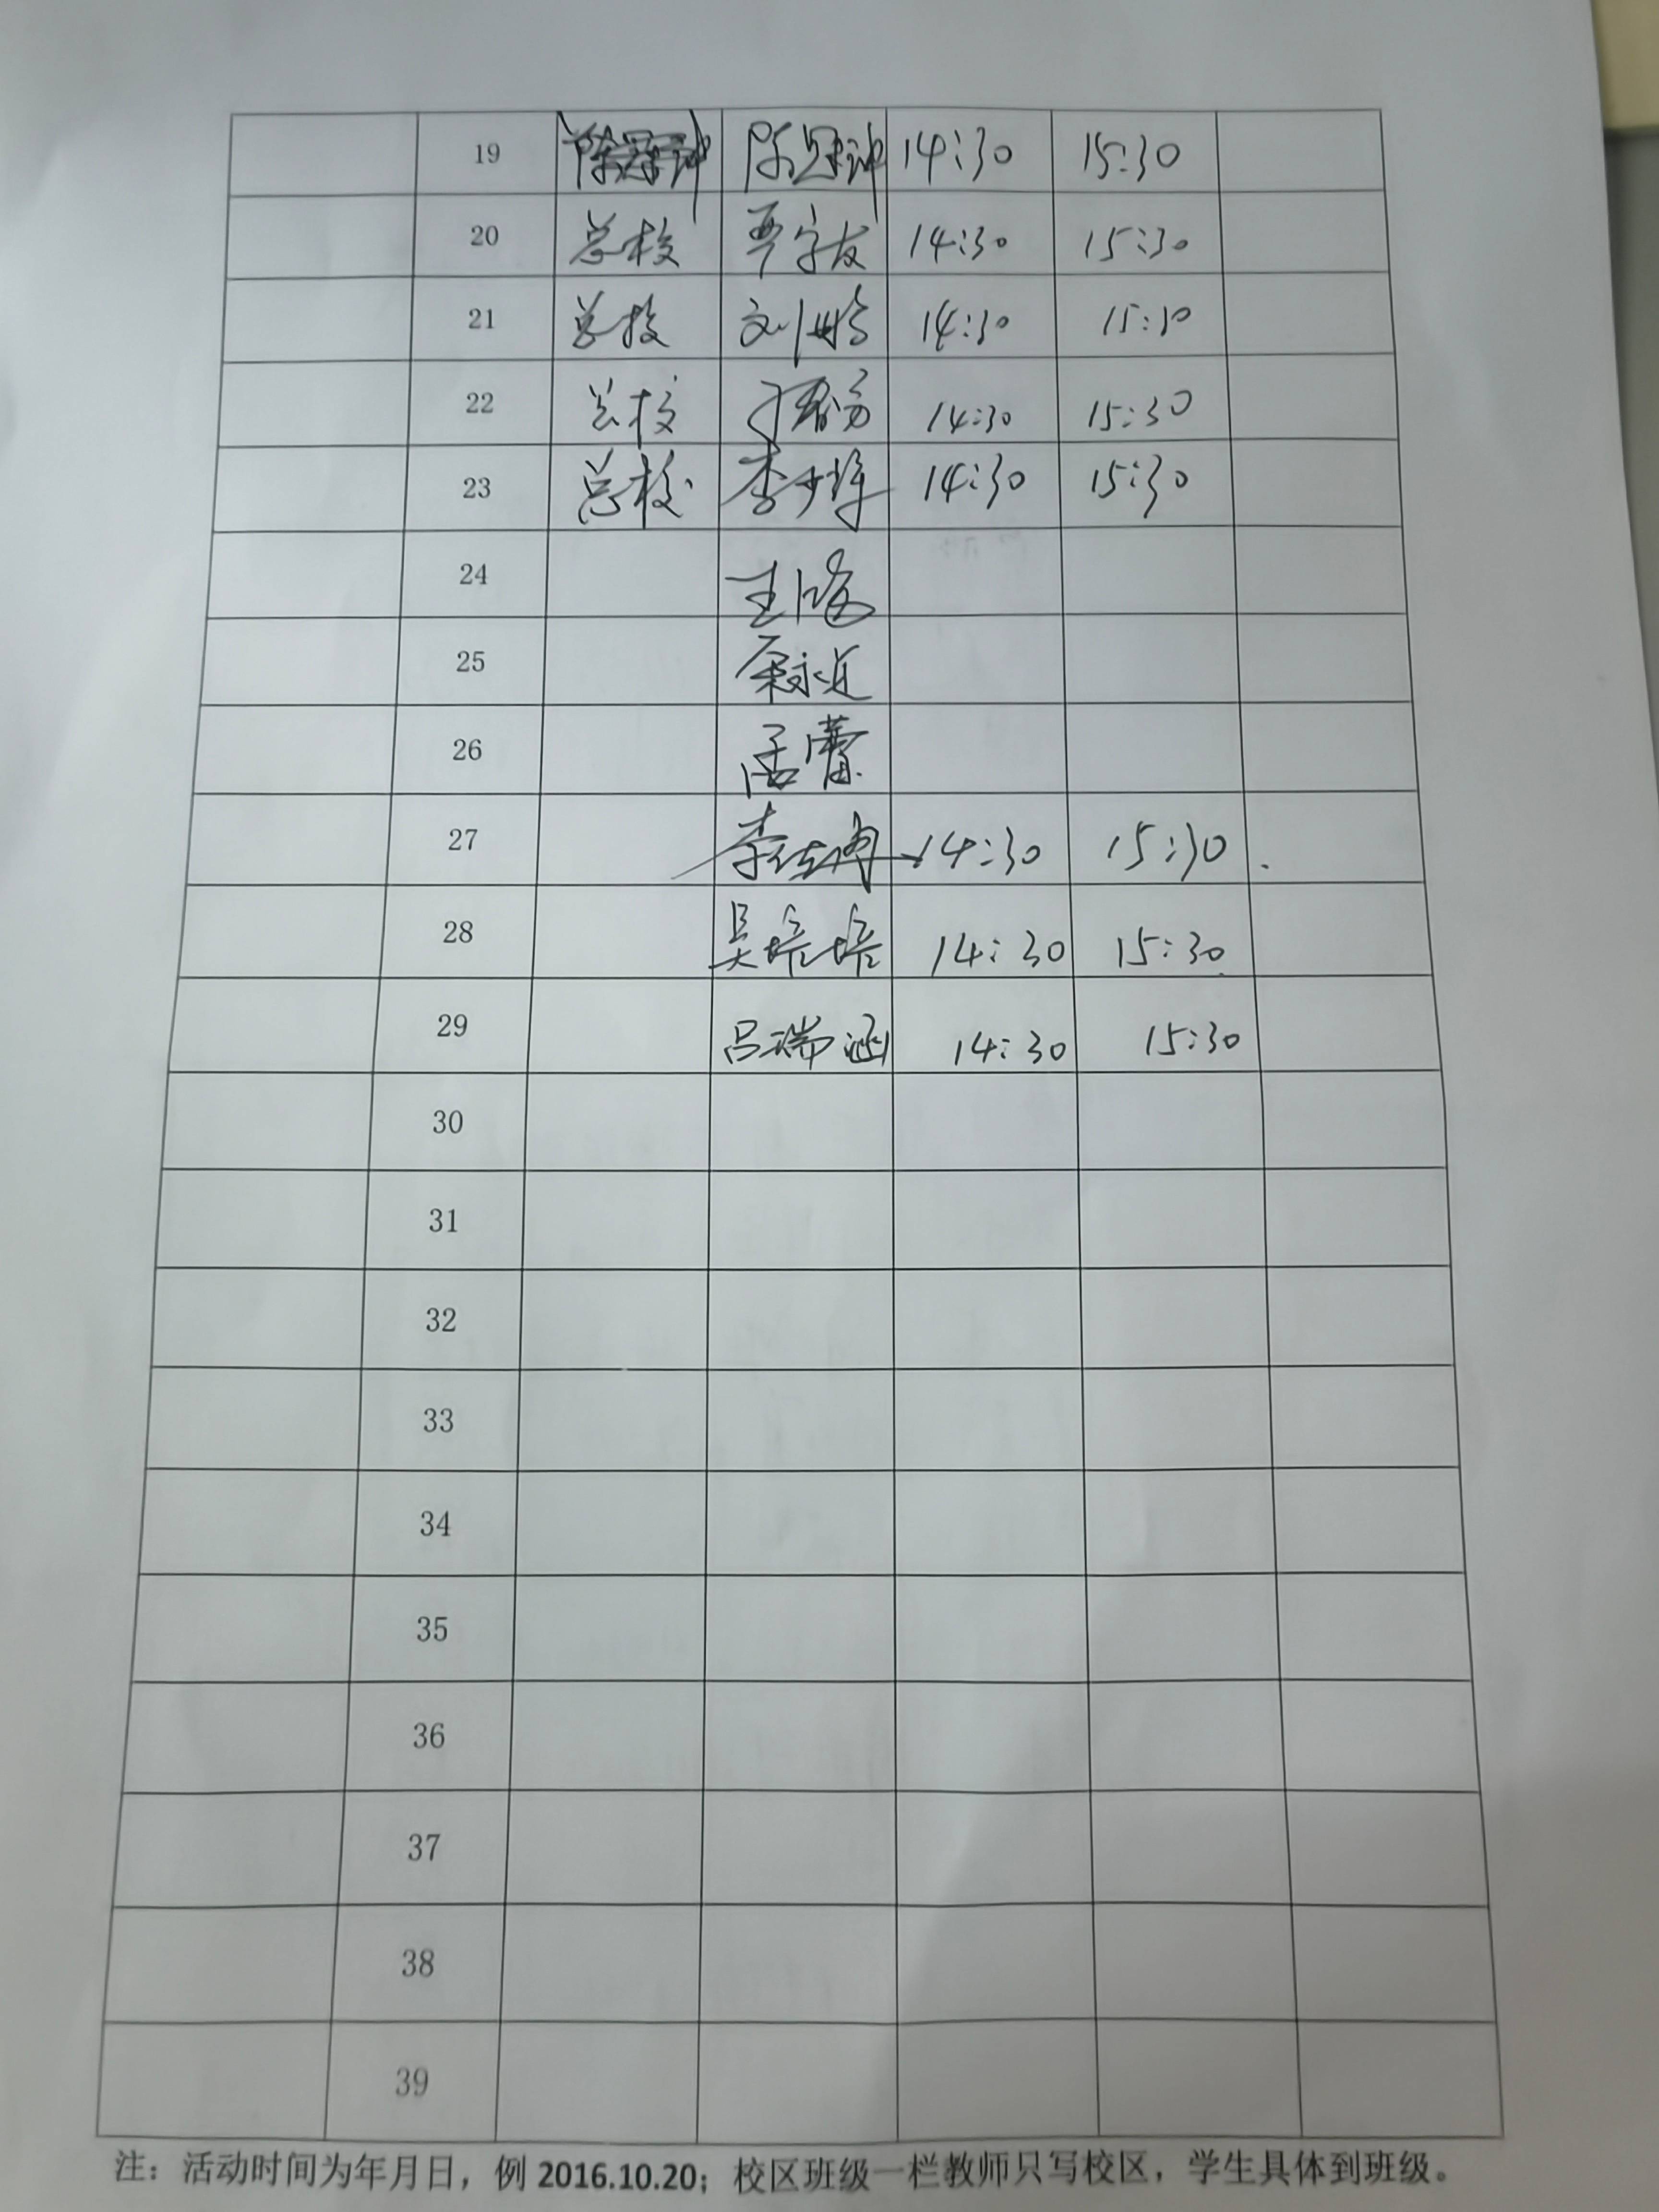 19 陈冠 14:30 15:30
20 总校 贾字友 14:30 15:30
21 总校 刘 14:30 15:30
22 总校 14:30 15:30
23 总校 李少 14:30 15:30
24 王
25 永近
26 孟蕾
27 李 14:30 15:30
28 吴培培 14:30 15:30
29 吕瑞涵 14:30 15:30
30
31
32
33
34
35
36
37
38
39
注：活动时间为年月日，例 2016.10.20；校区班级一栏教师只写校区，学生具体到班级。